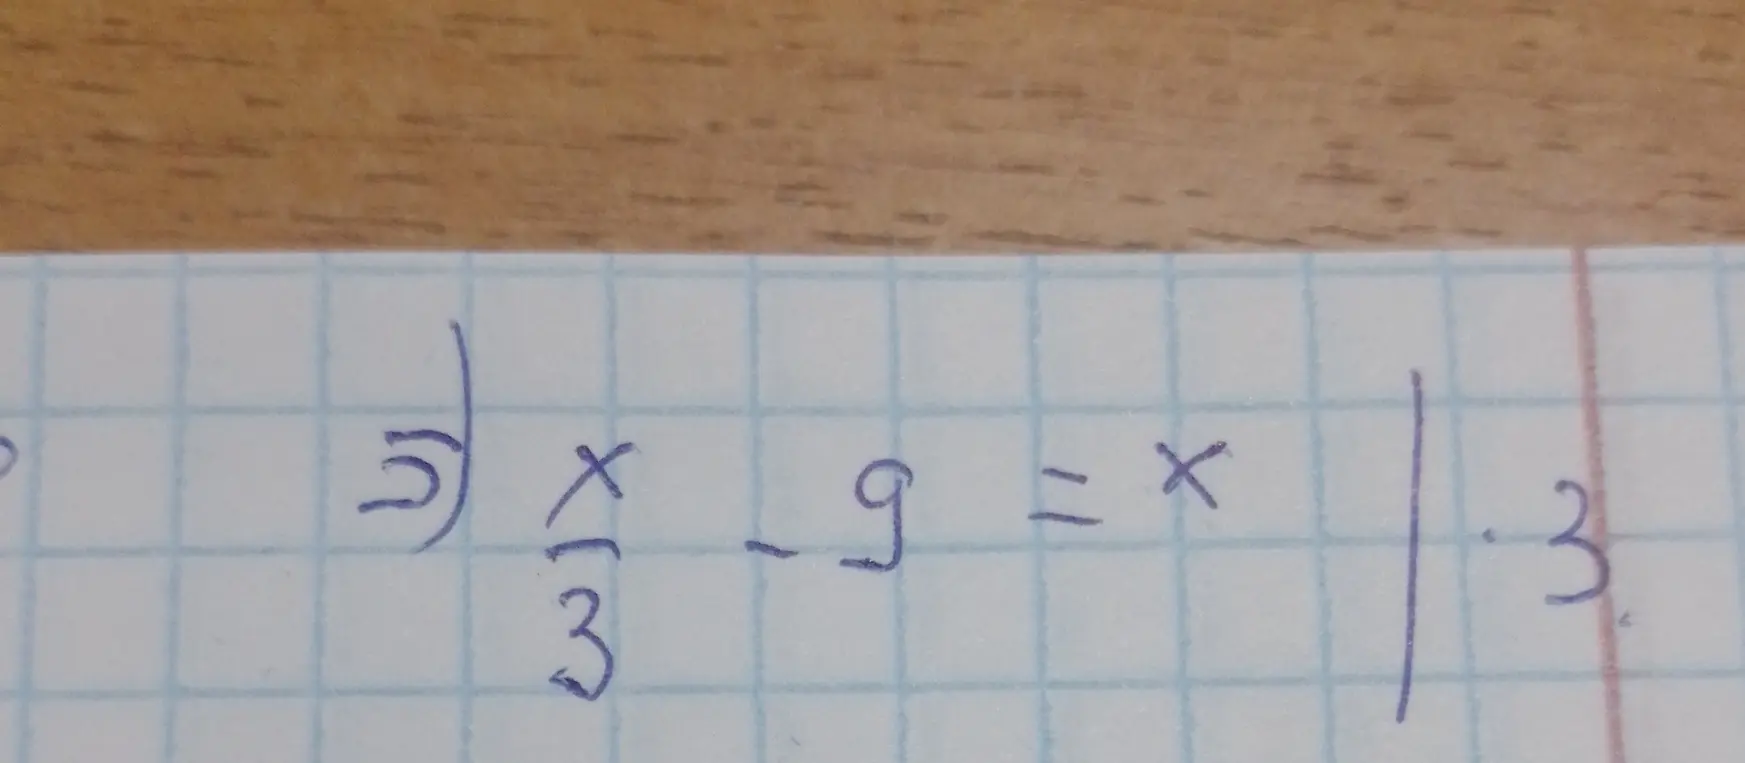 5) x/3 - 9 = x | · 3